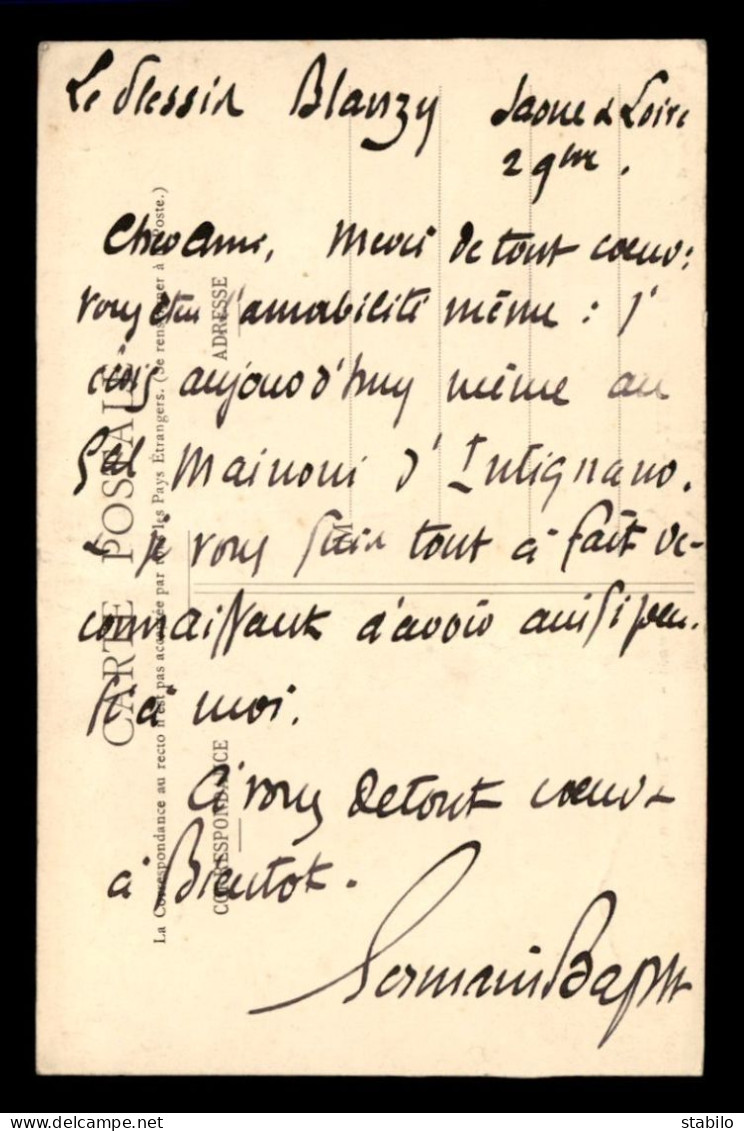 Le Plessis Blanzy Saone & Loire
2 9bre.
Cher Ami, Merci de tout coeur:
vous êtes l'amabilité même: j'
écris aujourd'huy même au
Gal Mainoni d'Intignano.
& je vous suis tout à fait re-
connaissant d'avoir ainsi pen-
sé à moi.
A vous de tout coeur &
à Bientot.
Germain Bapst
CARTE POSTALE
La Correspondance au recto n'est pas acceptée par tous les Pays Étrangers. (Se renseigner à la Poste.)
CORRESPONDANCE
ADRESSE
M
delcampe.net
stabilo